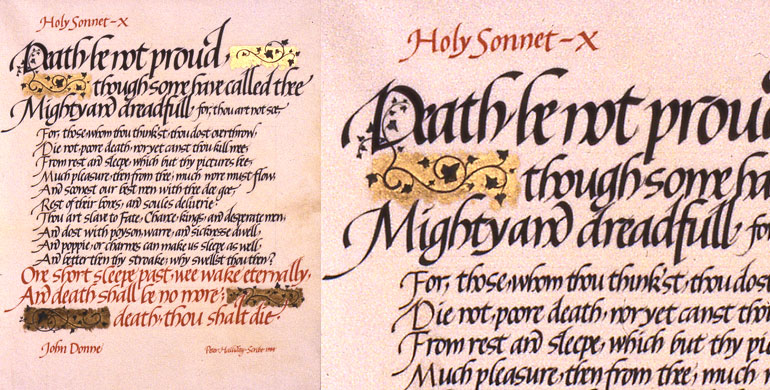 Holy Sonnet – X
Death be not proud,
though some have called thee
Mighty and dreadfull, for, thou art not soe,
For, those, whom thou think'st, thou dost overthrow,
Die not, poore death, nor yet canst thou kill mee;
From rest and sleepe, which but thy pictures bee,
Much pleasure, then from thee, much more must flow,
And soonest our best men with thee doe goe,
Rest of their bones, and soules deliverie.
Thou art slave to Fate, Chance, kings, and desperate men,
And dost with poyson, warre, and sicknesse dwell,
And poppie, or charmes can make us sleepe as well,
And better then thy stroake; why swellst thou then?
One short sleepe past, wee wake eternally,
And death shall be no more;
death, thou shalt die.
John Donne
Peter Halliday - Scribe
Holy Sonnet – X
Death be not prou
though some ha
Mighty and dreadfull, for
For, those, whom thou think'st, thou dost
Die not, poore death, nor yet canst tho
From rest and sleepe, which but thy pi
Much pleasure, then from thee, much